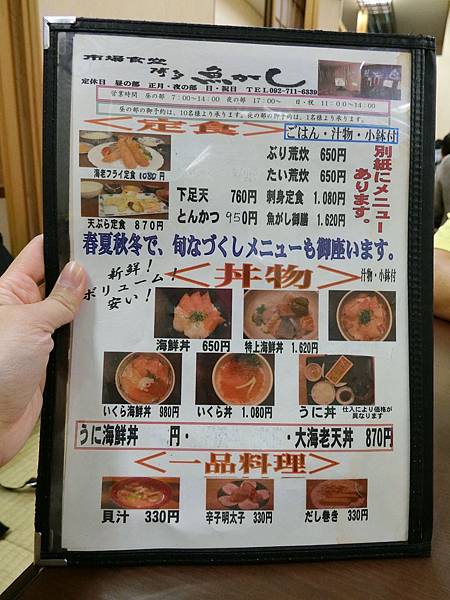 市場食堂 博多 魚がし
定休日 昼の部 正月・夜の部 日・祝日 TEL092-711-6339
営業時間 昼の部 7:00〜14:00 夜の部 17:00〜 日・祝 11:00〜14:00
昼の部の御予約は、10名様より承ります。夜の部の御予約は、1名様より承ります。
<定食> ごはん・汁物・小鉢付
ぶり荒炊 650円
たい荒炊 650円
別紙にメニューあります。
海老フライ定食 1080円
下足天 760円 刺身定食 1.080円
とんかつ 950円 魚がし御膳 1.620円
天ぷら定食 870円
春夏秋冬で、旬なづくしメニューも御座います。
新鮮!
ボリューム!
安い!
<丼物> 汁物・小鉢付
海鮮丼 650円 特上海鮮丼 1.620円
いくら海鮮丼 980円 いくら丼 1.080円 うに丼 仕入により価格が異なります
うに海鮮丼 円・ ・大海老天丼 870円
<一品料理>
貝汁 330円 辛子明太子 330円 だし巻き 330円